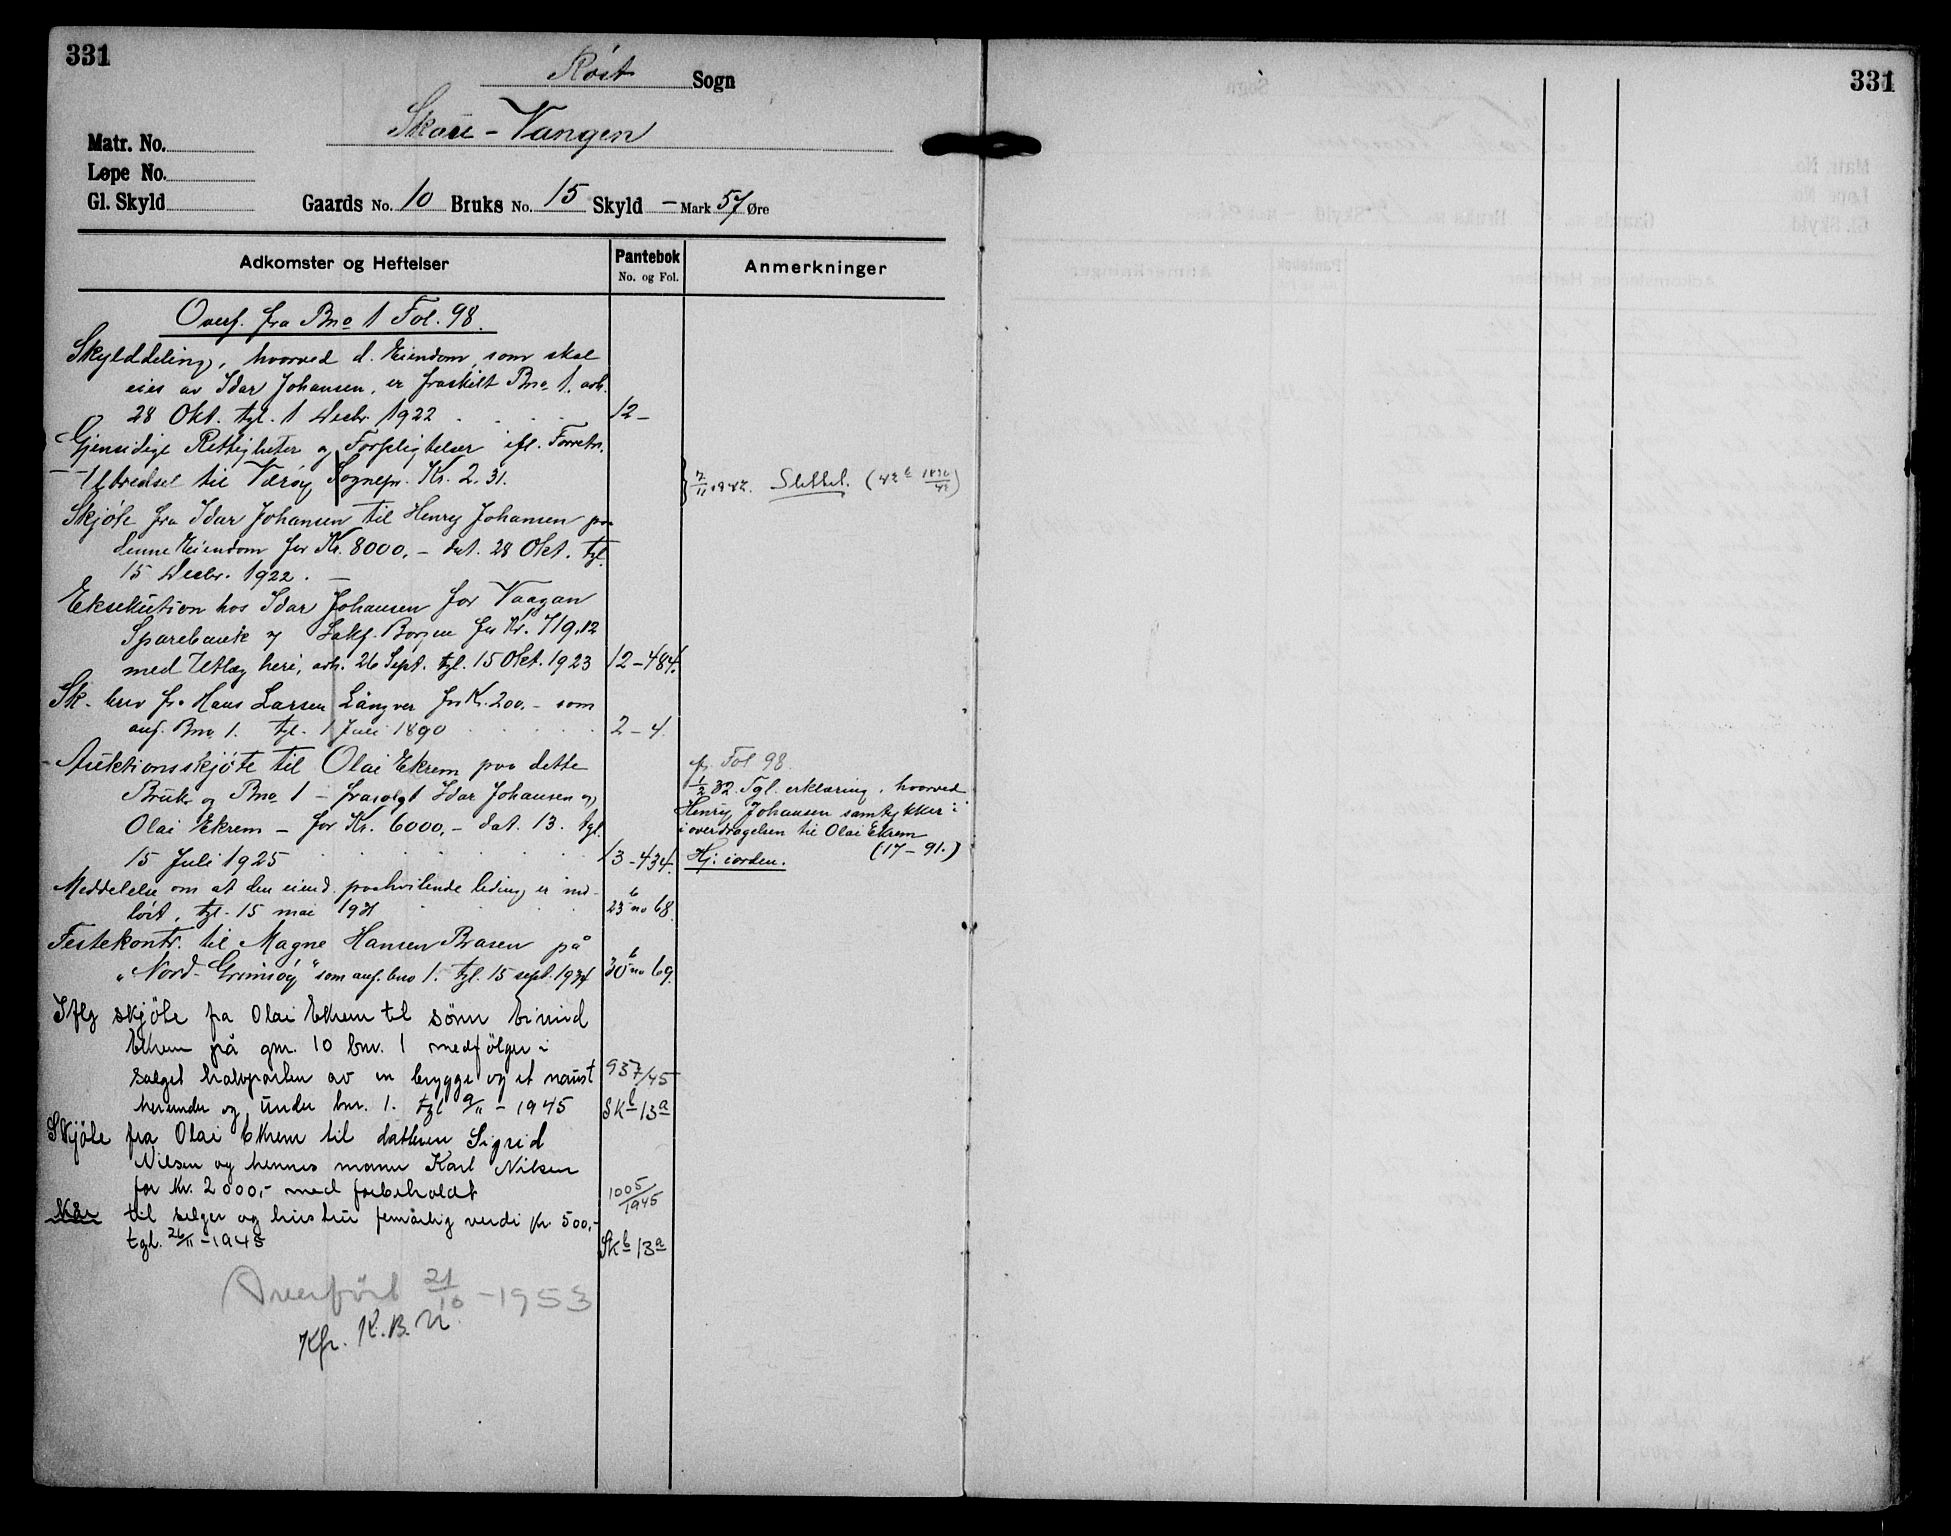 331
331
Röst Sogn
Skau-Vangen
Matr. No.
Løpe No.
Gl. Skyld
Gaards No. 10 Bruks No. 15 Skyld - Mark 57 Øre
Adkomster og Heftelser
Pantebok
No. og Fol.
Anmerkninger
Overf. fra Bno 1 Fol. 98.
Skylddeling, hvorved d. Eiendom, som skal
eies av Idar Johansen, er fraskilt Bno 1. avh.
28 Okt. tgl. 1 Decbr. 1922 12 -
Gjensidige Rettigheter og Forpligtelser ifl. Forretn.
Utredsel til Værøy Sognepr. Kr. 2.31.
7/11 1942. Slettet.
Skjöte fra Idar Johansen til Henry Johansen paa
denne Eiendom for Kr. 8000.- dat. 28 Okt. tgl.
15 Decbr. 1922. -
Eksekution hos Idar Johansen for Vaagan
Sparebank og Sakf. Borgen for Kr. 719.12
med Utlæg heri, avh. 26 Sept. tgl. 15 Okt. 1923 12-484.
Sk.brev fra Hans Larsen Långver for Kr. 200.- som
anf. Bno 1. tgl. 1 Juli 1890 2-4
Auktionsskjöte til Olai Ekrem paa dette
Bruk og Bno 1 - frasolgt Idar Johansen og
Olai Ekrem - for Kr. 6000.- dat. 13. tgl.
15 Juli 1925 13-434.
fr. Fol 98.
1/2 32. Tgl. erklæring, hvorved
Henry Johansen samtykker i
i overdragelsen til Olai Ekrem
(17-91.)
Hj: iorden.
Meddelelse om at den eiend. paahvilende leding er ind-
löst, tgl. 15 mai 1931 23 b no 68.
Festekontr. til Magne Hansen Brasen på
"Nord-Grimsöy" som anf. bno 1. tgl. 15 sept. 1934 30 b no 69.
Iflg skjöte fra Olai Ekrem til sönn Eivind
Ekrem på gnr. 10 bnr. 1 medfölger i
salget halvparten av en brygge og et naust
herunder og under bnr. 1. tgl 9/11 - 1945
937/45
Sk b 13 a
Skjöte fra Olai Ekrem til datteren Sigrid
Nilsen og hennes mann Karl Nilsen
for kr. 2000,- med forbeholdt
Kår til selger og hustru femårlig verdi kr. 500,-
tgl. 26/11 - 1945
1005/1945
Sk b 13 a
Overfört 21/10 - 1953
Kfr. K.B.N.